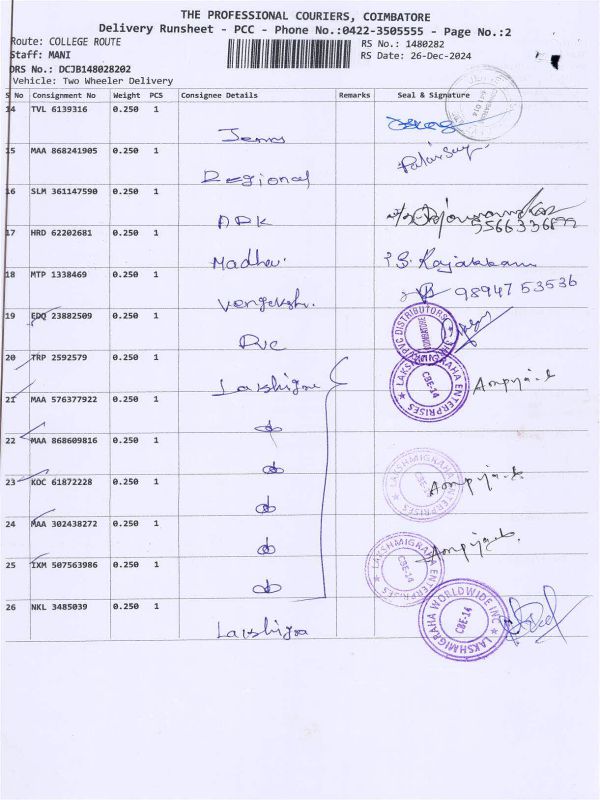 THE PROFESSIONAL COURIERS, COIMBATORE
Delivery Runsheet - PCC - Phone No.:0422-3505555 - Page No.:2
Route: COLLEGE ROUTE RS No.: 1480282
Staff: MANI RS Date: 26-Dec-2024
DRS No.: DCJB148028202
Vehicle: Two Wheeler Delivery
S No Consignment No Weight PCS Consignee Details Remarks Seal & Signature
14 TVL 6139316 0.250 1
Jenny
15 MAA 868241905 0.250 1
Regional
16 SLM 361147590 0.250 1
ADK
9566336899
17 HRD 62202681 0.250 1
Madhav.
18 MTP 1338469 0.250 1
98947 53536
19 EDQ 23882509 0.250 1
PVC DISTRIBUTORS
COIMBATORE
Pvc
20 TRP 2592579 0.250 1
LAKSHMIGRAHA ENTERPRISES
CBE-14
21 MAA 576377922 0.250 1
do
22 MAA 868609816 0.250 1
do
LAKSHMIGRAHA ENTERPRISES
CBE-14
23 KOC 61872228 0.250 1
do
24 MAA 302438272 0.250 1
do
LAKSHMIGRAHA ENTERPRISES
CBE-14
25 IXM 507563986 0.250 1
do
26 NKL 3485039 0.250 1
LAKSHMIGRAHA WORLDWIDE INC
CBE-14